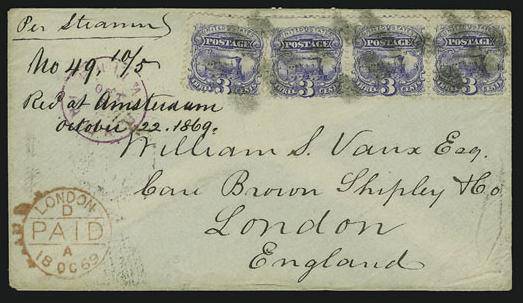 Per Steamer
No 49, 10/5
Recd at Amsterdam
October 22. 1869.
William S. Vaux Esq.
Care Brown Shipley & Co
London
England
POSTAGE POSTAGE POSTAGE POSTAGE
3 3 3 3
LONDON
D
PAID
A
18 OC 69